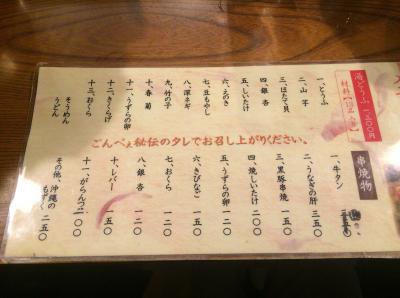 湯どうふ 一、三〇〇円
一、とうふ
二、山芋
三、ほたて貝
四、銀杏
五、しいたけ
六、えのき
七、豆もやし
八、深ネギ
九、竹の子
十、春菊
十一、うずらの卵
十二、きくらげ
十三、おくら
そうめん
うどん
ごんべえ秘伝のタレでお召し上がりください。
串焼物
一、牛タン
二、うなぎの肝 三五〇
三、黒豚串焼 一五〇
四、焼しいたけ 二〇〇
五、うずらの卵 一二〇
六、きびなご 一五〇
七、おくら 一二〇
八、銀杏 一二〇
十、レバー 一五〇
十一、がらんつ 二〇〇
その他、沖縄の
もずく 二五〇